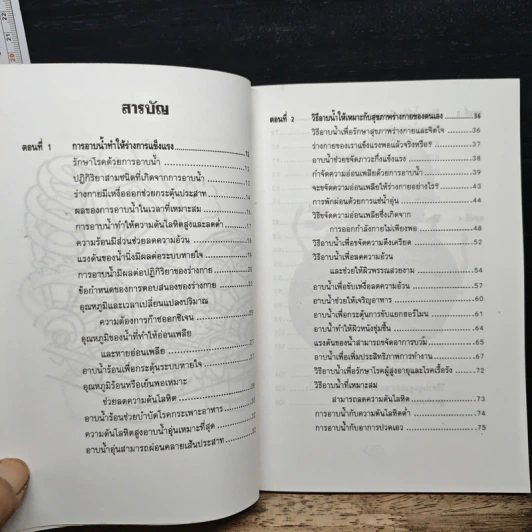 สารบัญ
ตอนที่ 1 การอาบน้ำทำให้ร่างการแข็งแรง
รักษาโรคด้วยการอาบน้ำ
ปฏิกิริยาสามชนิดที่เกิดจากการอาบน้ำ
ร่างกายมีเหงื่อออกช่วยกระตุ้นประสาท
ผลของการอาบน้ำในเวลาที่เหมาะสม
การอาบน้ำทำให้ความดันโลหิตสูงและลดต่ำ
ความร้อนมีส่วนช่วยลดความอ้วน
แรงดันของน้ำนิ่งมีผลต่อระบบหายใจ
การอาบน้ำมีผลต่อปฏิกิริยาของร่างกาย
ข้อกำหนดของการตอบสนองของร่างกาย
อุณหภูมิและเวลาเปลี่ยนแปลงปริมาณ
ความต้องการก๊าซออกซิเจน
อุณหภูมิของน้ำที่ทำให้อ่อนเพลีย
และหายอ่อนเพลีย
อาบน้ำร้อนเพื่อกระตุ้นระบบหายใจ
อุณหภูมิร้อนหรือเย็นพอเหมาะ
ช่วยลดความดันโลหิต
อาบน้ำร้อนช่วยบำบัดโรคกระเพาะอาหาร
ความดันโลหิตสูงอาบน้ำอุ่นเหมาะที่สุด
อาบน้ำอุ่นสามารถผ่อนคลายเส้นประสาท
ตอนที่ 2 วิธีอาบน้ำให้เหมาะกับสุขภาพร่างกายของตนเอง 36
วิธีอาบน้ำเพื่อรักษาสุขภาพร่างกายและจิตใจ 36
ร่างกายของเราแข็งแรงพอแล้วจริงหรือ? 37
อาบน้ำช่วยขจัดภาวะกึ่งแข็งแรง 38
กำจัดความอ่อนเพลียด้วยการอาบน้ำ 40
จะขจัดความอ่อนเพลียให้ร่างกายอย่างไร? 41
การพักผ่อนด้วยการแช่น้ำอุ่น 44
วิธีขจัดความอ่อนเพลียซึ่งเกิดจาก
การออกกำลังกายไม่เพียงพอ 48
วิธีอาบน้ำเพื่อขจัดความตึงเครียด 52
วิธีอาบน้ำเพื่อลดความอ้วน
และช่วยให้ผิวพรรณสวยงาม 54
อาบน้ำเพื่อขับเหงื่อลดความอ้วน 57
อาบน้ำช่วยให้เจริญอาหาร 60
อาบน้ำเพื่อกระตุ้นการขับแยกฮอร์โมน 61
อาบน้ำทำให้ผิวหนังชุ่มชื้น 64
แรงดันของน้ำสามารถขจัดอาการบวม 65
อาบน้ำเพื่อเพิ่มประสิทธิภาพการทำงาน 67
วิธีอาบน้ำเพื่อรักษาโรคผู้สูงอายุและโรคเรื้อรัง 72
วิธีอาบน้ำที่เหมาะสม
สามารถลดความดันโลหิต 73
การอาบน้ำกับความดันโลหิตต่ำ 74
การอาบน้ำกับอาการปวดเอว 75